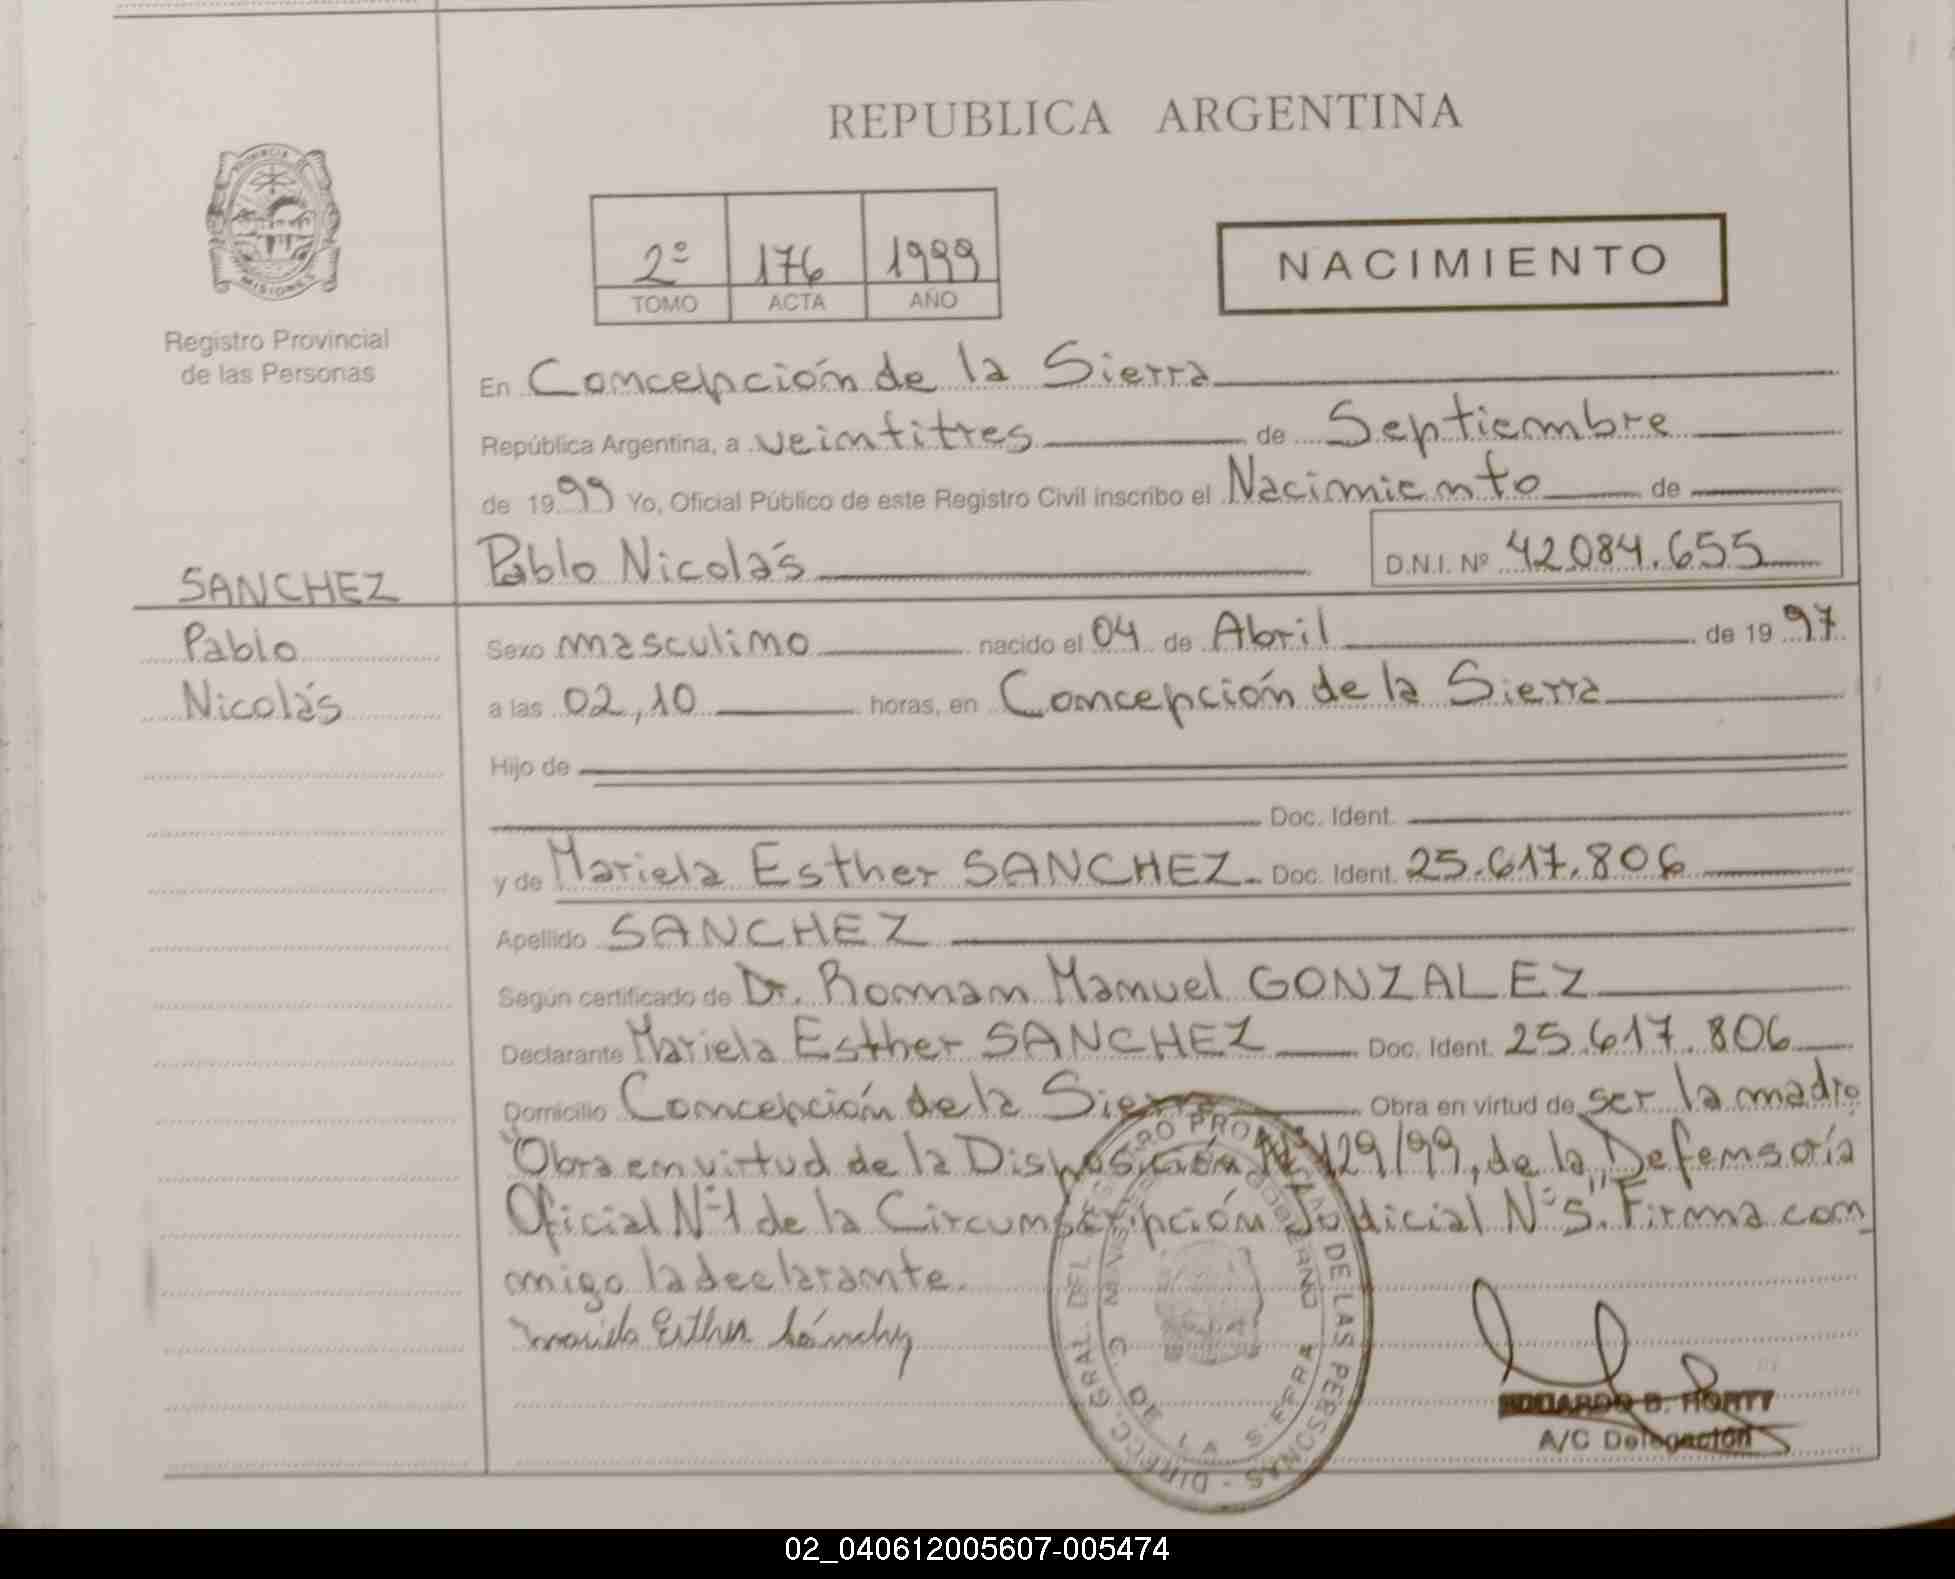 REPUBLICA ARGENTINA
PROVINCIA DE
MISIONES
Registro Provincial
de las Personas
2º 176 1999
TOMO ACTA AÑO
NACIMIENTO
En Concepción de la Sierra
República Argentina, a veintitres de Septiembre
de 1999 Yo, Oficial Público de este Registro Civil inscribo el Nacimiento de
Pablo Nicolás D.N.I. Nº 42.084.655
SANCHEZ
Pablo
Nicolás
Sexo masculino nacido el 04 de Abril de 1997
a las 02,10 horas, en Concepción de la Sierra
Hijo de
Doc. Ident.
y de Mariela Esther SANCHEZ. Doc. Ident. 25.617.806
Apellido SANCHEZ
Según certificado de Dr. Roman Manuel GONZALEZ
Declarante Mariela Esther SANCHEZ Doc. Ident. 25.617.806
Domicilio Concepción de la Sierra Obra en virtud de ser la madre
"Obra en virtud de la Disposición Nº 129/99, de la Defensoría
Oficial Nº1 de la Circunscripción Judicial Nº 5". Firma con
migo la declarante.
Mariela Esther Sánchez
DIRECC. GRAL. DEL REGISTRO PROVINCIAL DE LAS PERSONAS
DE LA SIERRA
EDUARDO B. HORTT
A/C Delegación
02_040612005607-005474